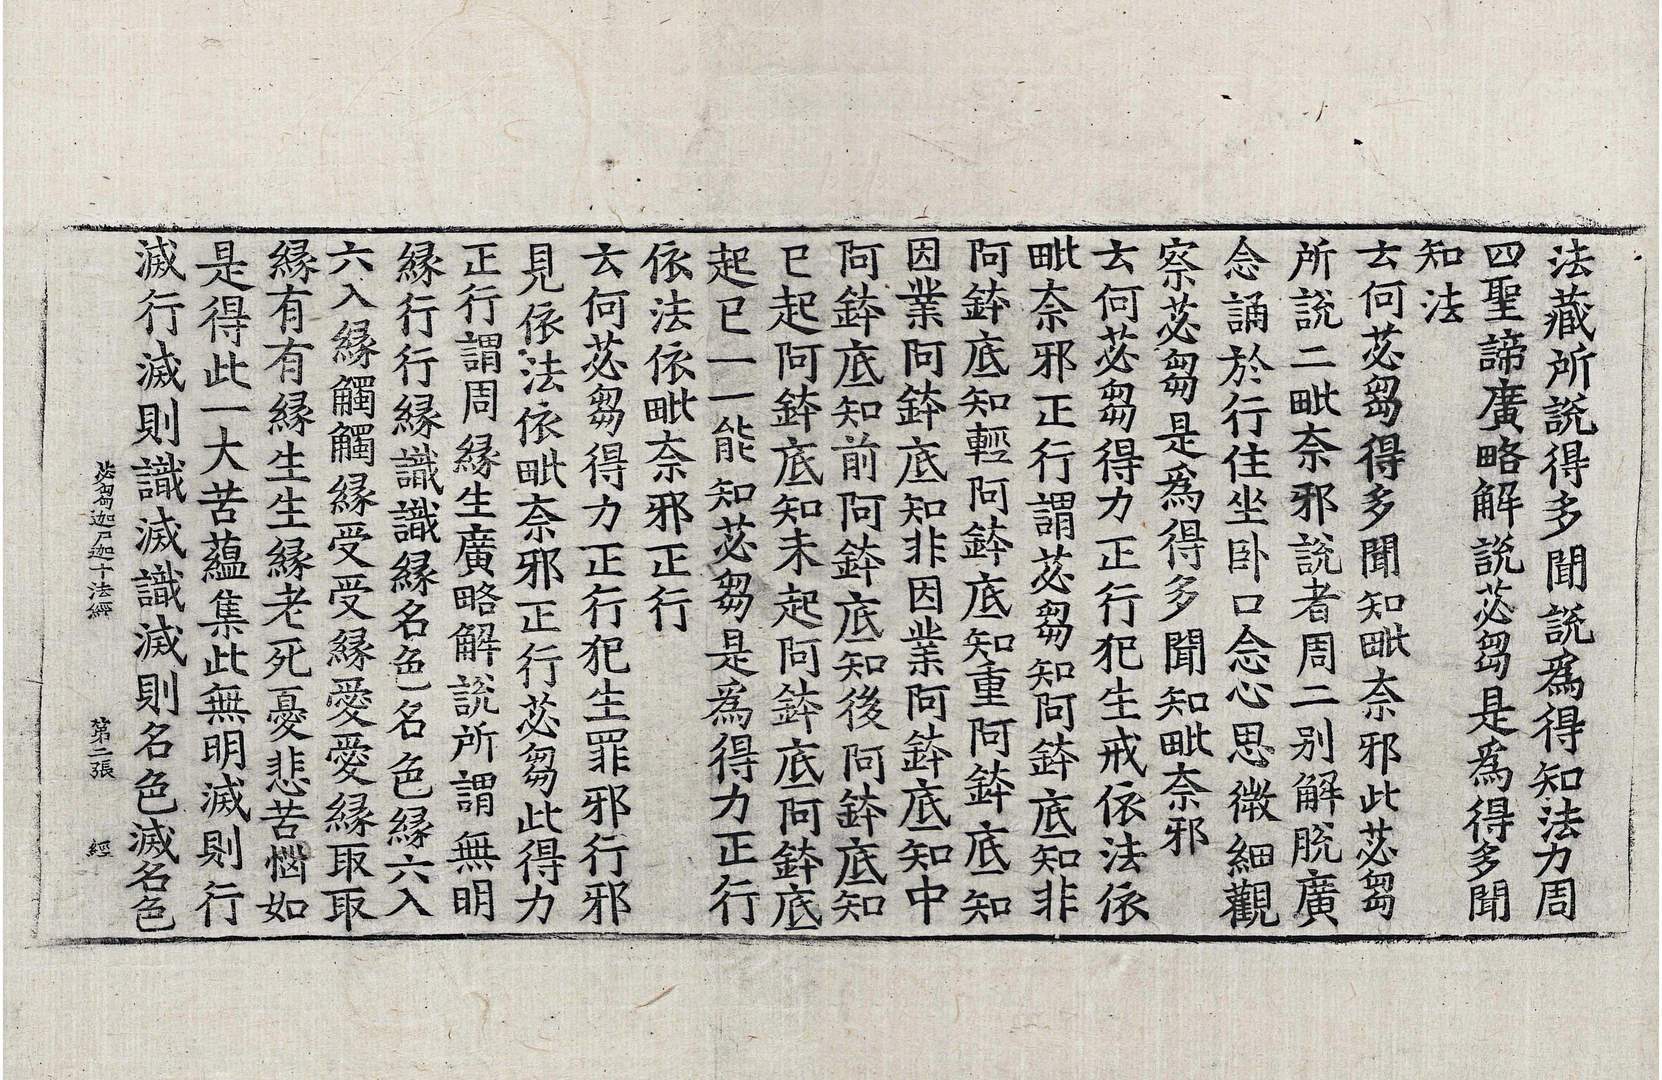 法藏所說得多聞說爲得知法力周
四聖諦廣略解說苾芻是爲得多聞
知法
云何苾芻得多聞知毗奈邪此苾芻
所說二毗奈邪說者周二別解脫廣
念誦於行住坐卧口念心思微細觀
察苾芻是爲得多聞知毗奈邪
云何苾芻得力正行犯生戒依法依
毗奈邪正行謂苾芻知阿鉢底知非
阿鉢底知輕阿鉢底知重阿鉢底知
因業阿鉢底知非因業阿鉢底知中
阿鉢底知前阿鉢底知後阿鉢底知
已起阿鉢底知未起阿鉢底阿鉢底
起已一一能知苾芻是爲得力正行
依法依毗奈邪正行
云何苾芻得力正行犯生罪邪行邪
見依法依毗奈邪正行苾芻此得力
正行謂周緣生廣略解說所謂無明
緣行行緣識識緣名色名色緣六入
六入緣觸觸緣受受緣愛愛緣取取
緣有有緣生生緣老死憂悲苦惱如
是得此一大苦蘊集此無明滅則行
滅行滅則識滅識滅則名色滅名色
苾芻迦尸迦十法經 第二張 經